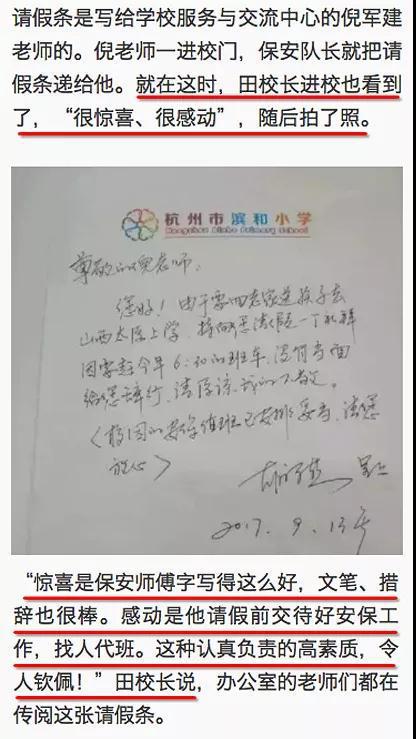 请假条是写给学校服务与交流中心的倪军建
老师的。倪老师一进校门，保安队长就把请
假条递给他。就在这时，田校长进校也看到
了，“很惊喜、很感动”，随后拍了照。
杭州市滨和小学
Hangzhou Binhe Primary School
尊敬的倪老师：
您好！由于要回老家送孩子去
山西太原上学，特向您请假一个礼拜
因需赶今早6:10的班车，没有当面
给您辞行，请原谅我的不敬。
（校园的安保值班已安排妥当，请您
放心）
2017.9.13号
“惊喜是保安师傅字写得这么好，文笔、措
辞也很棒。感动是他请假前交待好安保工
作，找人代班。这种认真负责的高素质，令
人钦佩！”田校长说，办公室的老师们都在
传阅这张请假条。